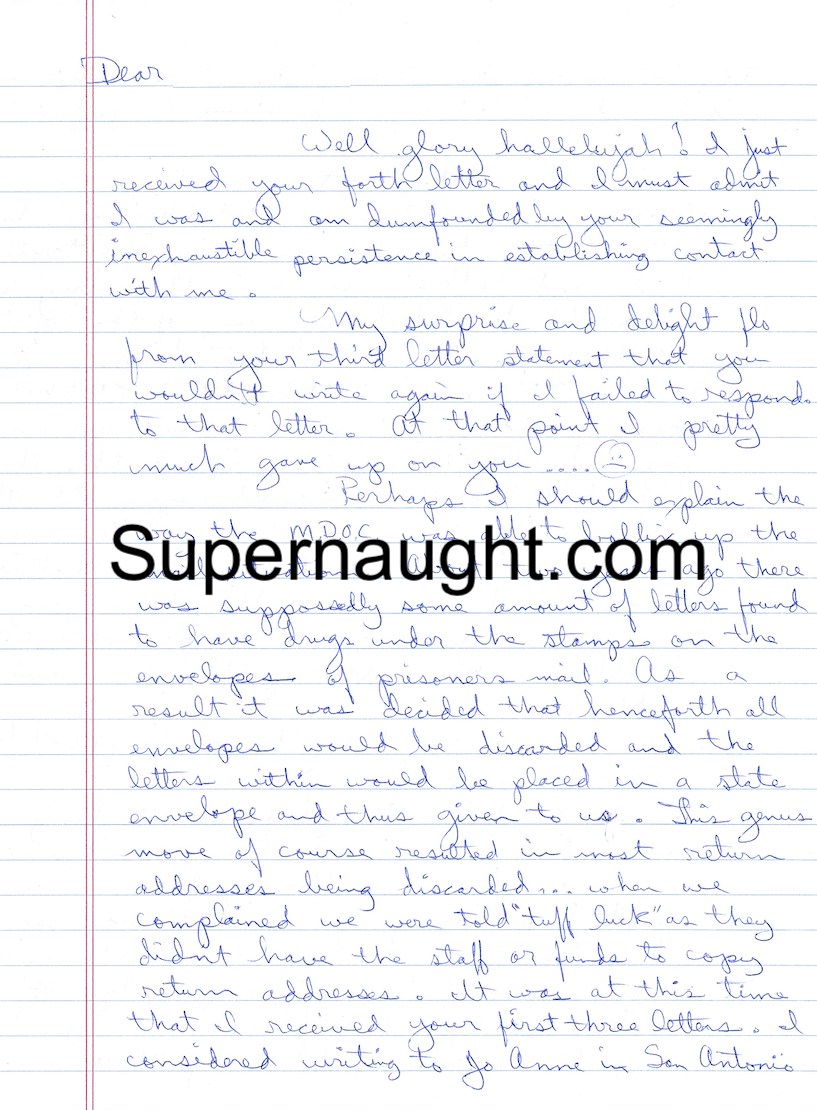 Dear
Well glory hallelujah! I just
received your forth letter and I must admit
I was and am dumfounded by your seemingly
inexhaustible persistence in establishing contact
with me.
My surprise and delight flo
from your third letter statement that you
wouldn't write again if I failed to respond
to that letter. At that point I pretty
much gave up on you ....
Perhaps I should explain the
way the MDOC was able to up the
Supernaught.com
ago there
was suppossedly some amount of letters found
to have drugs under the stamps on the
envelopes of prisoners mail. As a
result it was decided that henceforth all
envelopes would be discarded and the
letters within would be placed in a state
envelope and thus given to us. This genus
move of course resulted in most return
addresses being discarded... when we
complained we were told "tuff luck" as they
didnt have the staff or funds to copy
return addresses. It was at this time
that I received your first three letters. I
considered writing to Jo Anne in San Antonio